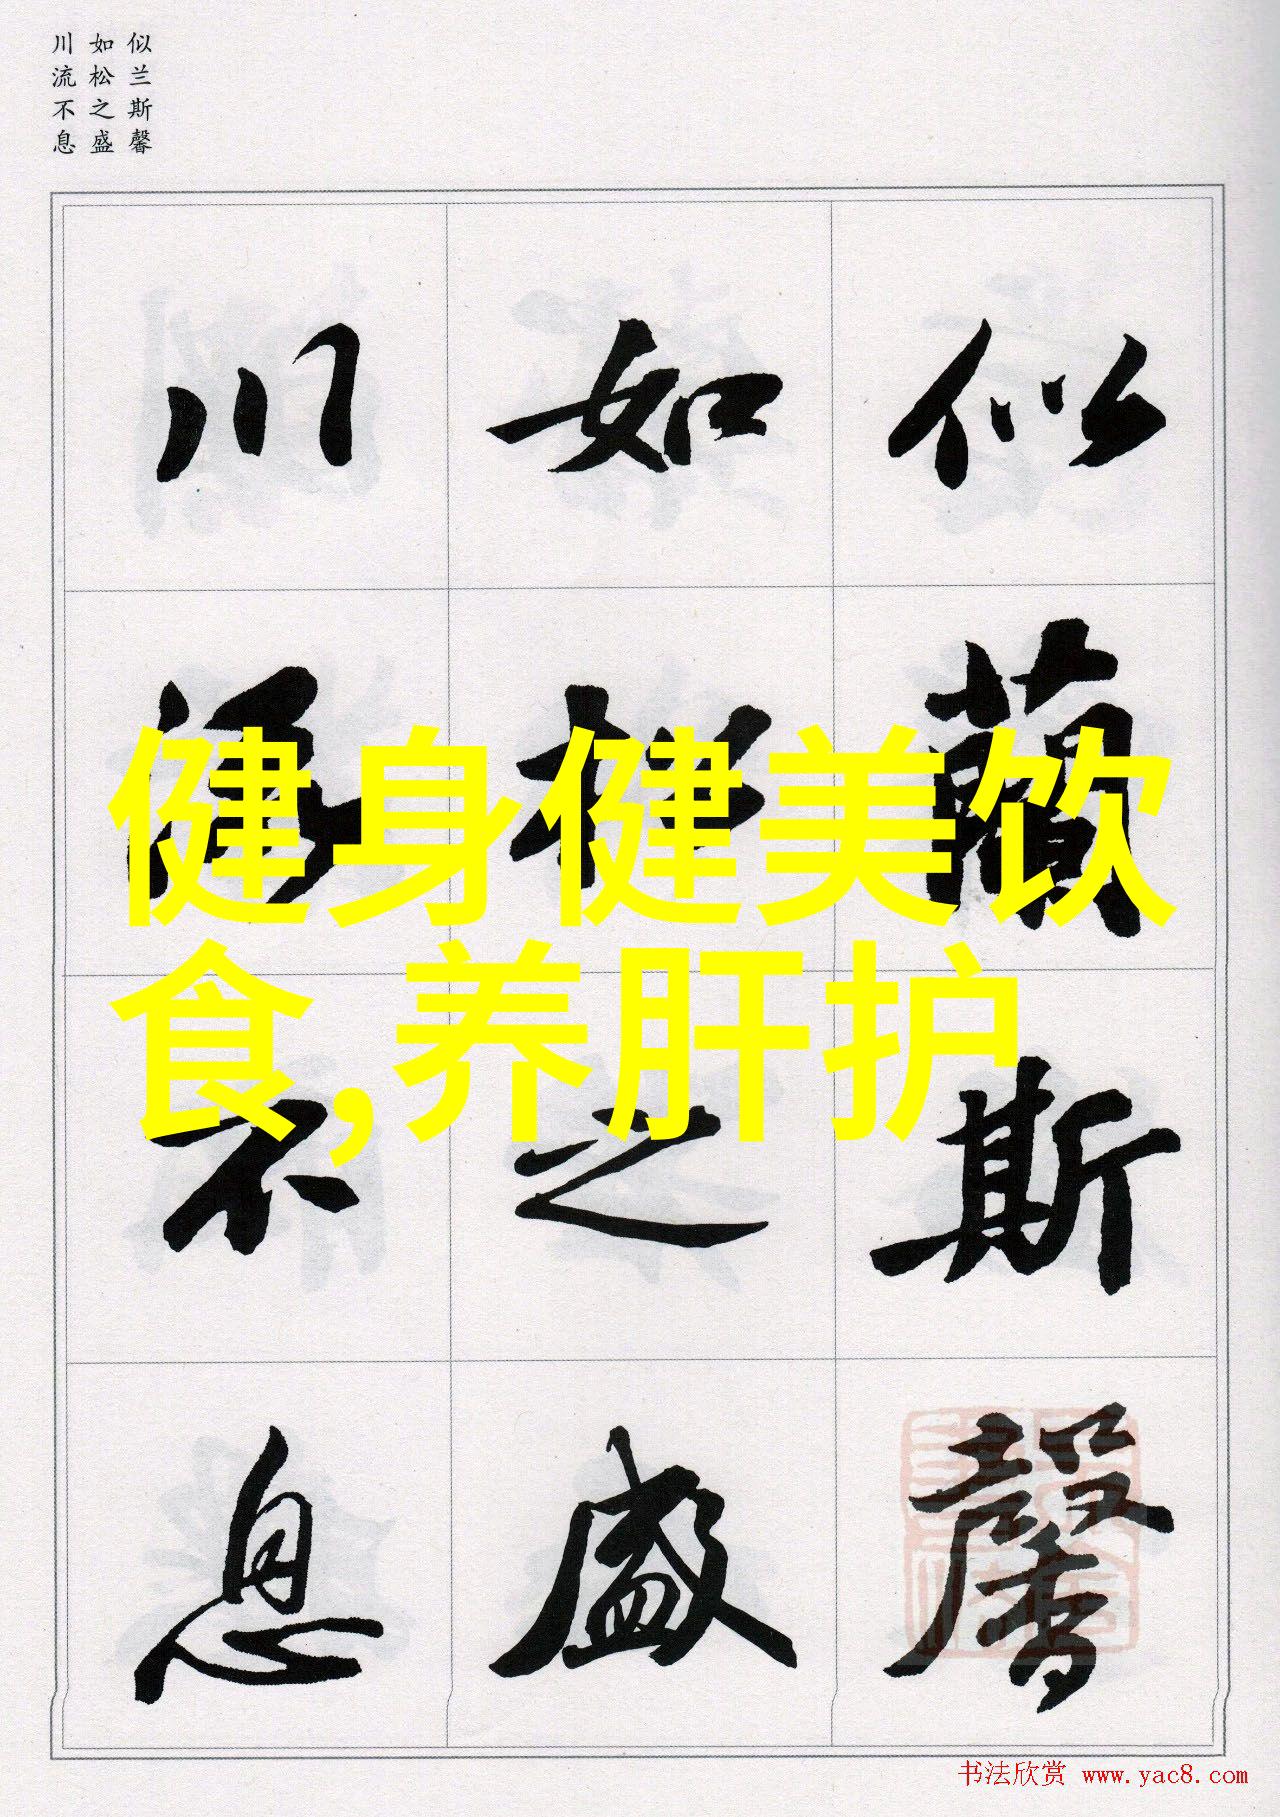 似兰斯馨
如松之盛
川流不息
似蘭斯馨
如松之盛
川流不息
健身健美饮
食,养肝护
书法欣赏 www.yac8.com